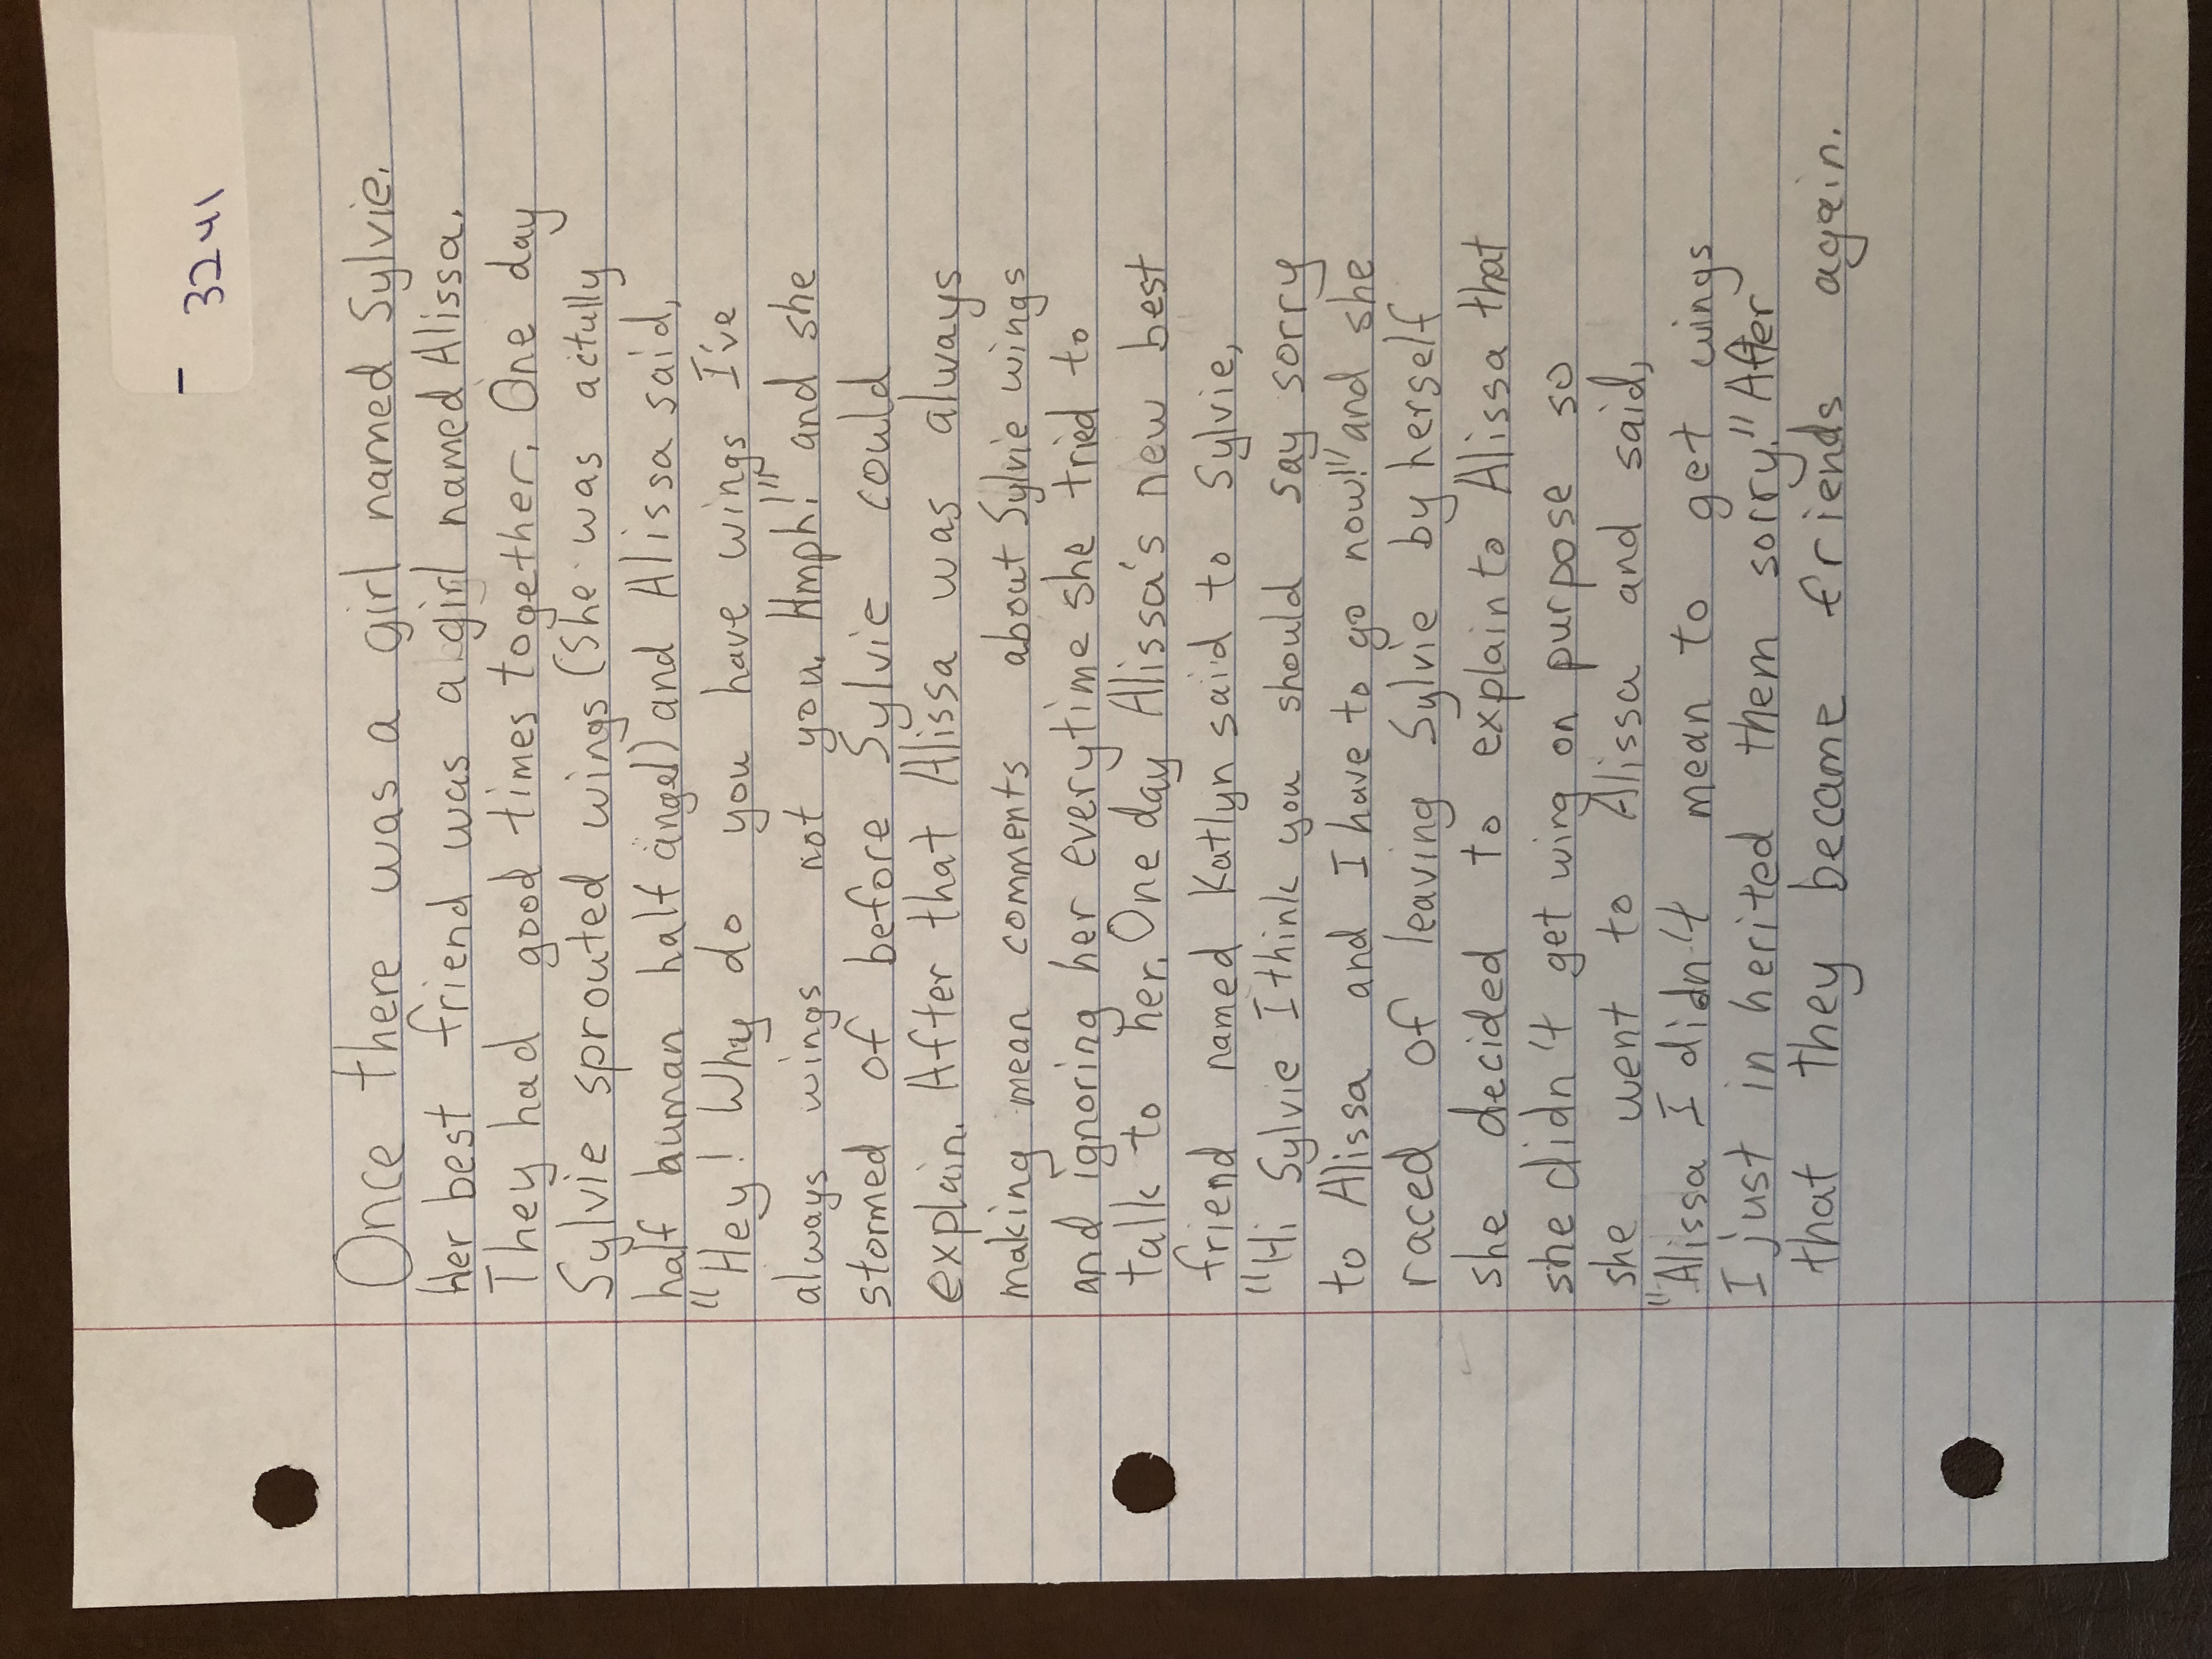 - 3241
Once there was a girl named Sylvie.
Her best friend was a girl named Alissa.
They had good times together. One day
Sylvie sprouted wings (She was actully
half human half angel) and Alissa said,
"Hey! Why do you have wings I've
always wings not you. Hmph!" and she
stormed of before Sylvie could
explain. After that Alissa was always
making mean comments about Sylvie wings
and ignoring her everytime she tried to
talk to her. One day Alissa's new best
friend named Katlyn said to Sylvie,
"Hi Sylvie I think you should say sorry
to Alissa and I have to go now!" and she
raced of leaving Sylvie by herself
she decided to explain to Alissa that
she didn't get wing on purpose so
she went to Alissa and said,
"Alissa I didn't mean to get wings
I just in herited them sorry." After
that they became friends again.